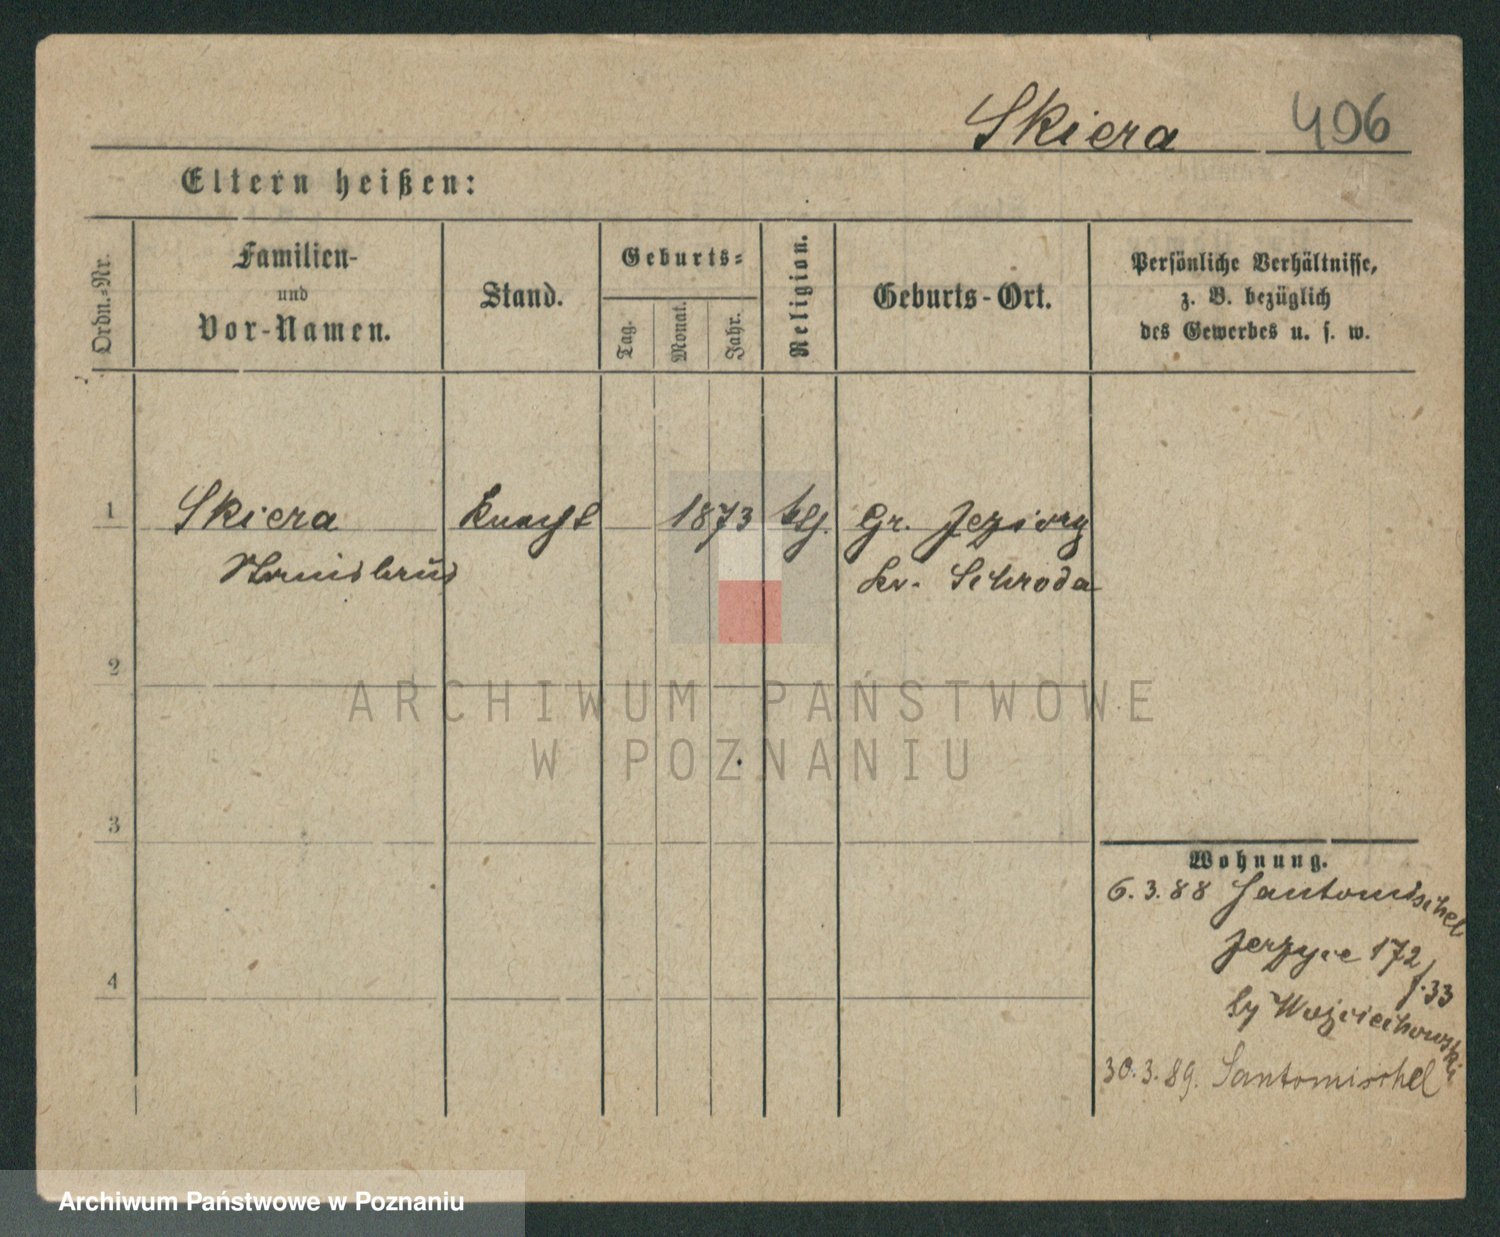 Skiera 496
Eltern heißen:
Ordn.-Nr.
Familien-
und
Vor-Namen.
Stand.
Geburts-
Tag.
Monat.
Jahr.
Religion.
Geburts-Ort.
Persönliche Verhältnisse,
z. B. bezüglich
des Gewerbes u. s. w.
1 Skiera Knecht 1873 klg. Gr. Jeziory
Stanislaus Kr. Schroda
2
3
4
Wohnung.
6.3.88 Santomischel
Jerzyce 172
f. 33
by Wojciechowski
30.3.89. Santomischel
ARCHIWUM PAŃSTWOWE
W POZNANIU
Archiwum Państwowe w Poznaniu